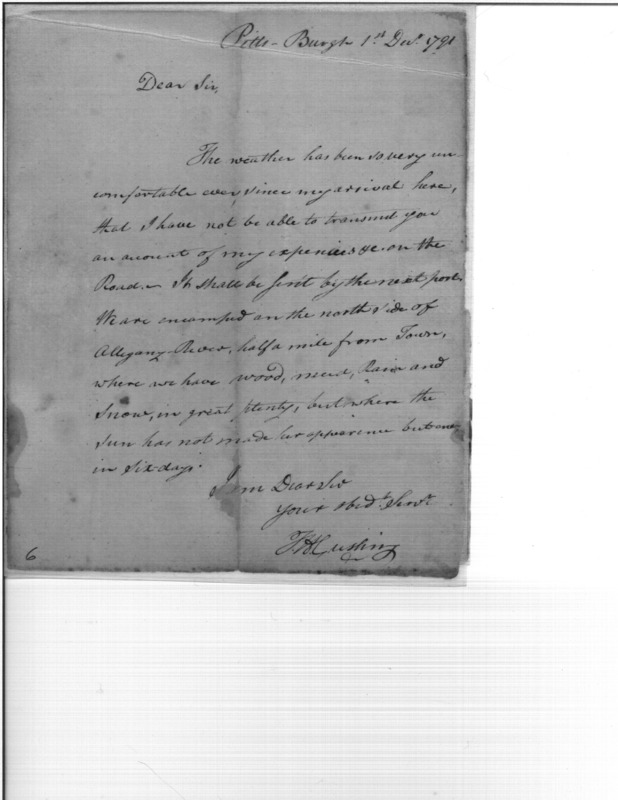 Pitts-Burgh 1st Decr. 1791
Dear Sir,
The weather has been so very un
comfortable ever, since my arrival here,
that I have not be able to transmit you
an account of my expences &c. on the
Road. It shall be sent by the next post.
We are encamped on the north side of
Allegany River, half a mile from Town,
where we have wood, mud, Rain and
Snow, in great plenty, but where the
Sun has not made her appearence but once
in Six days.
I am Dear Sir
your obedt. Servt.
T H Cushing
6